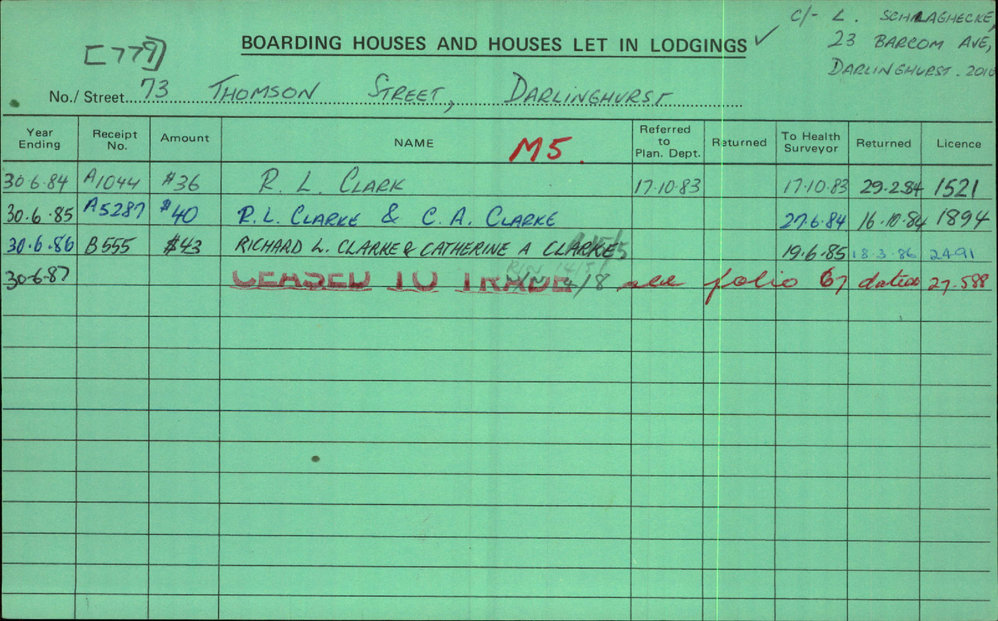 C/- L. SCHLAGHECKE,
[779] BOARDING HOUSES AND HOUSES LET IN LODGINGS ✓ 23 BARCOM AVE,
DARLINGHURST. 2010
No./ Street 73 THOMSON STREET, DARLINGHURST
Year Ending Receipt No. Amount NAME M5. Referred to Plan. Dept. Returned To Health Surveyor Returned Licence
30.6.84 A1044 $36 R. L. CLARK 17.10.83 17.10.83 29.2.84 1521
30.6.85 A5287 $40 R.L. CLARKE & C. A. CLARKE 27.6.84 16.10.84 1894
30.6.86 B555 $43 RICHARD L. CLARKE & CATHERINE A CLARKE 19.6.85 18.3.86 2491
30.6.87 CEASED TO TRADE see folio 67 dated 27.5.88